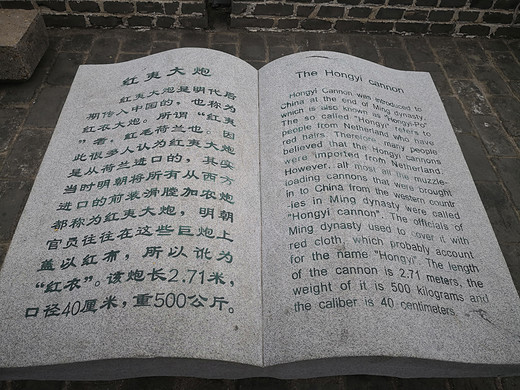 红夷大炮
红夷大炮是明代后
期传入中国的，也称为
红衣大炮。所谓“红夷
”者，红毛荷兰也。因
此很多人认为红夷大炮
是从荷兰进口的，其实
当时明朝将所有从西方
进口的前装滑膛加农炮
都称为红夷大炮，明朝
官员往往在这些巨炮上
盖以红布，所以讹为
“红衣”。该炮长2.71米，
口径40厘米，重500公斤。
The Hongyi cannon
Hongyi Cannon was introduced to
China at the end of Ming dynasty,
which is also known as "Hongyi-Po".
The so called "Hongyi" refers to
people from Netherland who have
red hairs. Therefore, many people
believed that the Hongyi cannons
were imported from Netherland.
However, all most all the muzzle-
loading cannons that were brought
in to China from the western countr
-ies in Ming dynasty were called
"Hongyi cannon". The officials of
Ming dynasty used to cover it with
red cloth, which probably account
for the name "Hongyi". The length
of the cannon is 2.71 meters, the
weight of it is 500 kilograms and
the caliber is 40 centimaters.